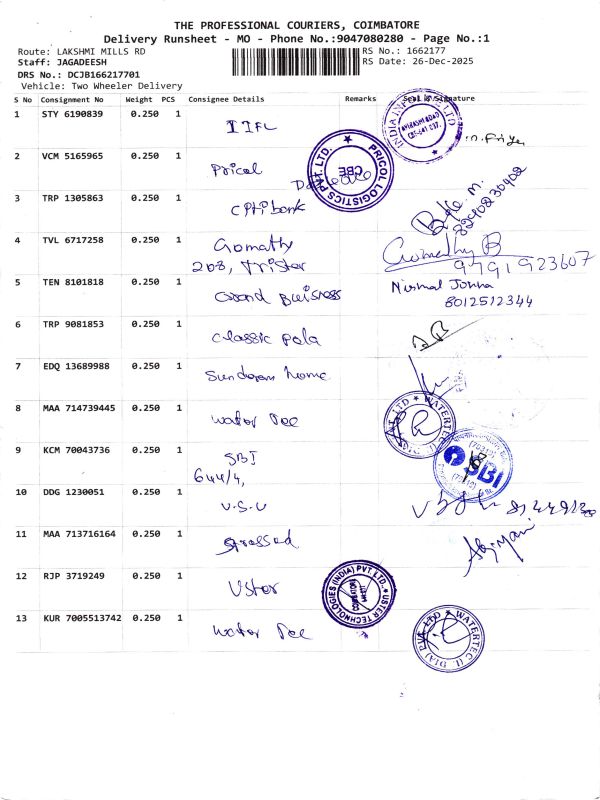 THE PROFESSIONAL COURIERS, COIMBATORE
Delivery Runsheet - MO - Phone No.:9047080280 - Page No.:1
Route: LAKSHMI MILLS RD
RS No.: 1662177
Staff: JAGADEESH
RS Date: 26-Dec-2025
DRS No.: DCJB166217701
Vehicle: Two Wheeler Delivery
S No Consignment No Weight PCS Consignee Details Remarks Seal & Signature
1 STY 6190839 0.250 1 IIFL
2 VCM 5165965 0.250 1 Pricol
PRICOL LOGISTICS PVT. LTD. CBE
3 TRP 1305863 0.250 1
4 TVL 6717258 0.250 1 Gomathy
208, Trister
Gomathy B
9791923607
5 TEN 8101818 0.250 1 Grand Buisness
Nirmal Johna
8012512344
6 TRP 9081853 0.250 1 Classic Pola
7 EDQ 13689988 0.250 1 Sundaram home
8 MAA 714739445 0.250 1 Water Tec
9 KCM 70043736 0.250 1 SBI
644/4,
SBI
10 DDG 1230051 0.250 1 V.S.U
11 MAA 713716164 0.250 1 Stressed
12 RJP 3719249 0.250 1 Uster
USTER TECHNOLOGIES (INDIA) PVT LTD.
13 KUR 7005513742 0.250 1 Water Tec
WATERTEC (INDIA) PVT. LTD